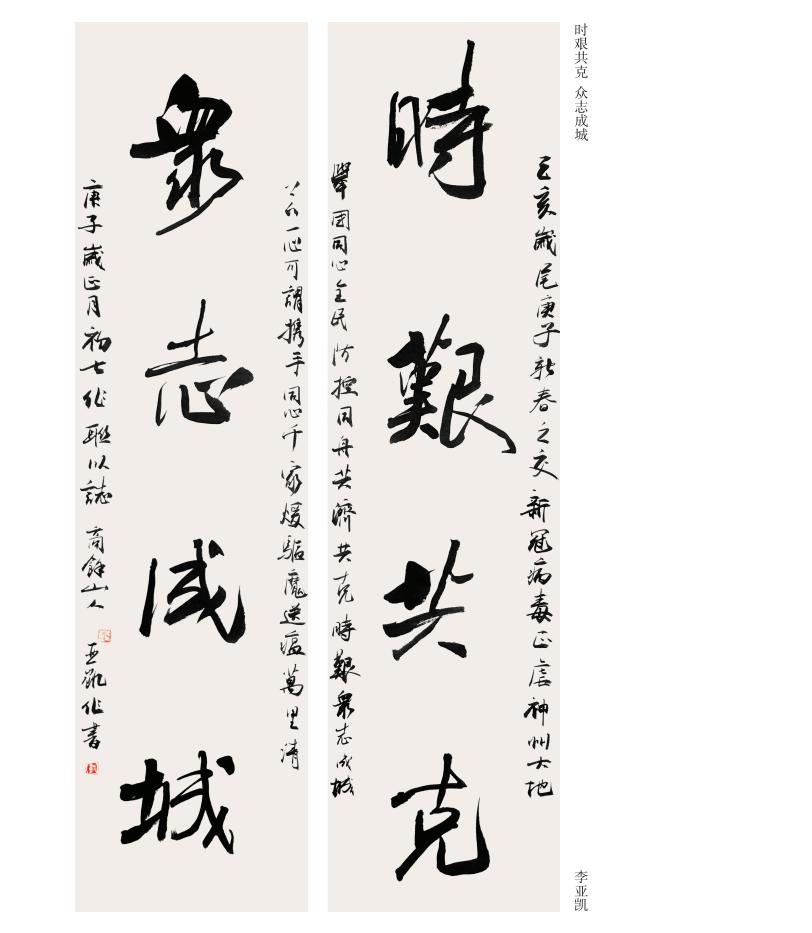 时艰共克 众志成城
李亚凯
己亥歲尾庚子新春之交新冠病毒正虐神州大地
時艱共克
舉国同心全民防控同舟共濟共克時艱衆志成城
一心可謂攜手同心千家煖驅魔送瘟萬里清
衆志成城
庚子歲正月初七作聯以誌 商餘山人 亚凱作書